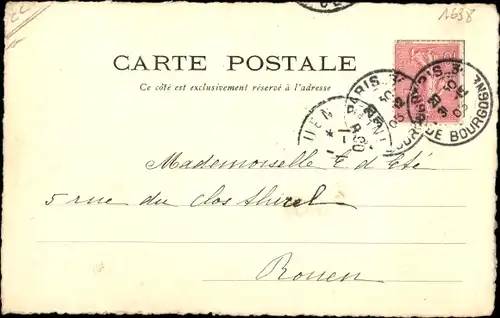 1638
CARTE POSTALE
Ce côté est exclusivement réservé à l'adresse
PARIS
R. DE BOURGOGNE
Mademoiselle E d'Eté
5 rue du clos thirel
Rouen